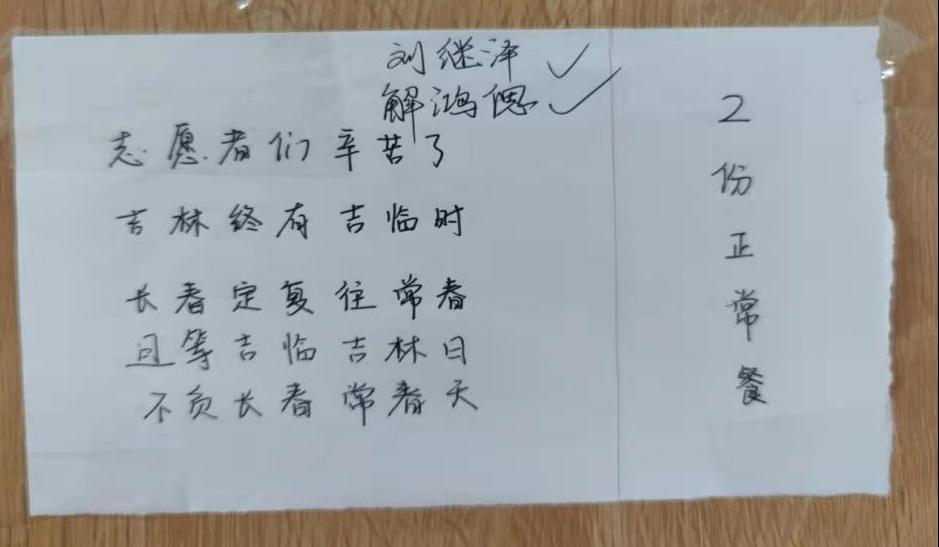 刘继泽
解鸿偲
志愿者们辛苦了
吉林终有吉临时
长春定复往常春
且等吉临吉林日
不负长春常春天
2份正常餐